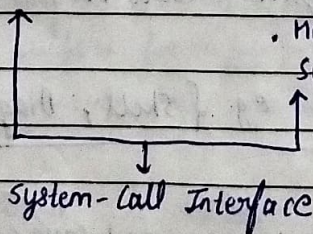 System-Call Interface